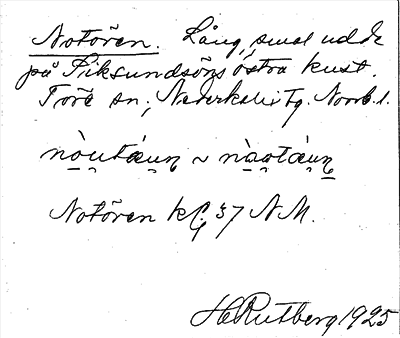 Notören. Lång, smal udde
på Siksundsöns östra kust.
Töre sn; Nederkalix tg. Norrb. l.
nòu̯tæun̥ ~ nàotáun̥
Notören kG 37 N.M.
H Rutberg 1925